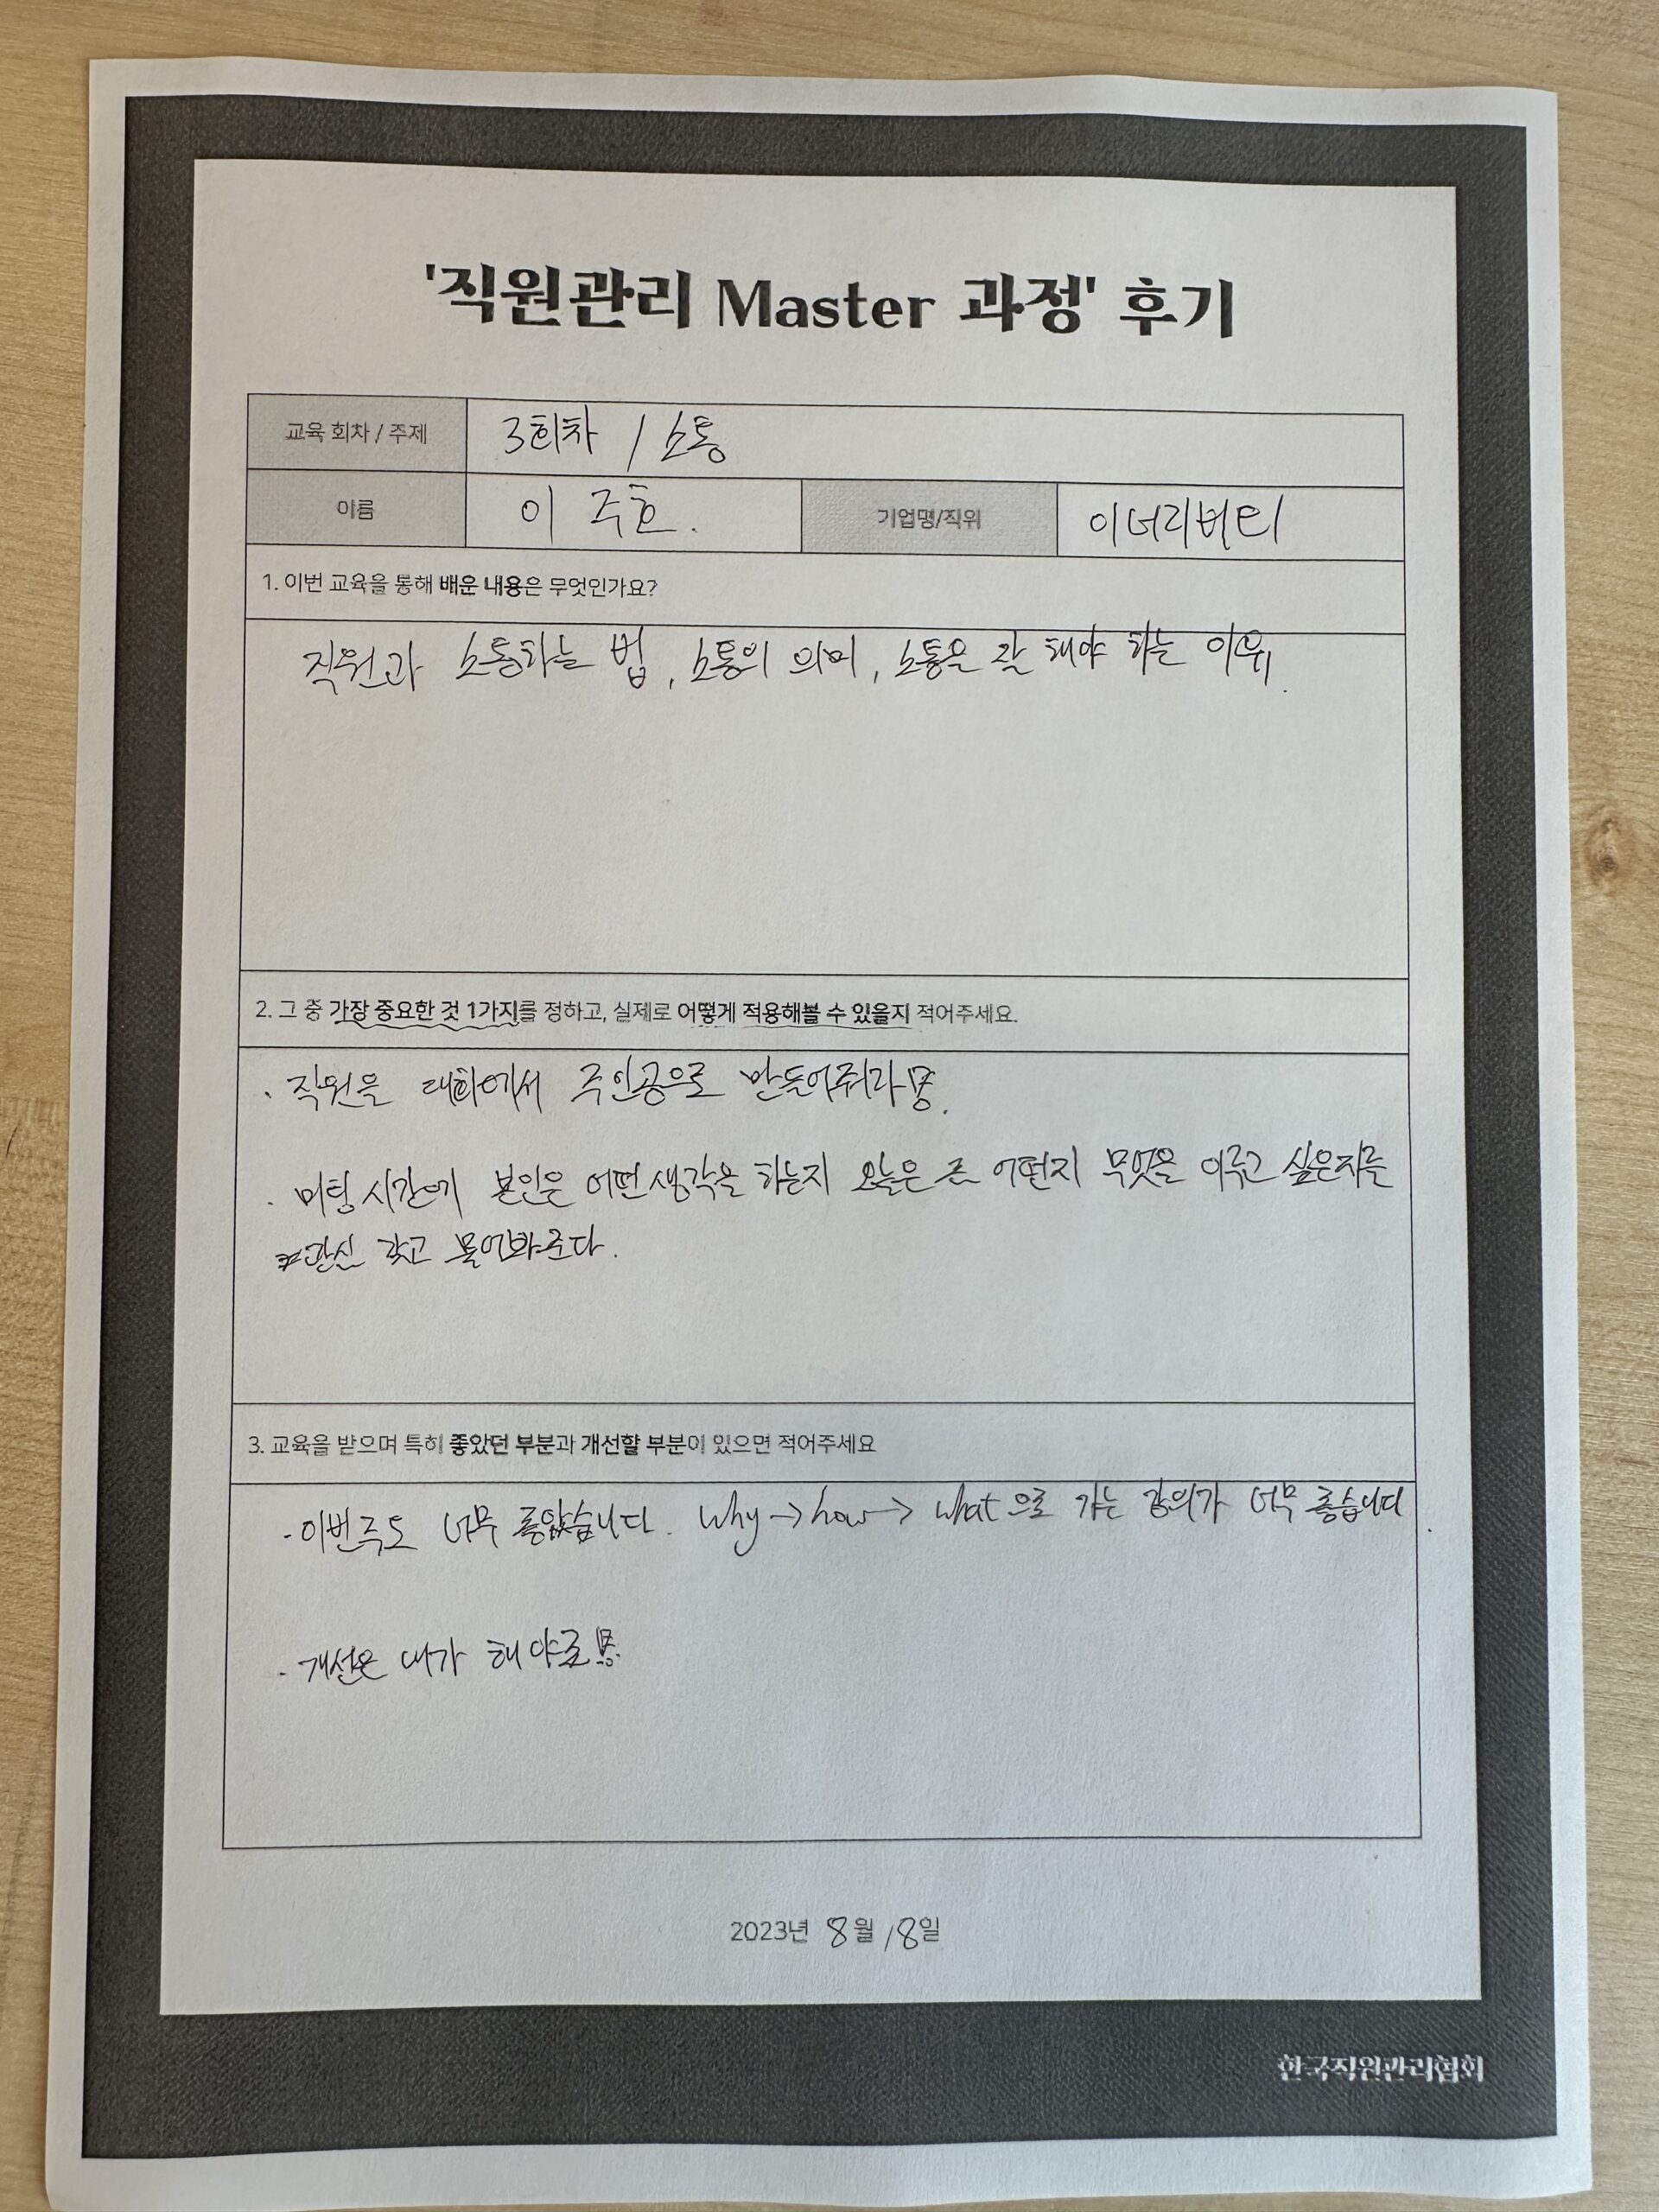 '직원관리 Master 과정' 후기
교육 회차 / 주제 3회차 / 소통
이름 이 주호. 기업명/직위 이너리버티
1. 이번 교육을 통해 배운 내용은 무엇인가요?
직원과 소통하는 법, 소통의 의미, 소통은 잘 해야 하는 이유.
2. 그 중 가장 중요한 것 1가지를 정하고, 실제로 어떻게 적용해볼 수 있을지 적어주세요.
· 직원을 대화에서 주인공으로 만들어줘라
· 미팅 시간에 본인은 어떤 생각을 하는지 오늘은 어떤지 무엇을 이루고 싶은지를
관심 갖고 물어봐준다.
3. 교육을 받으며 특히 좋았던 부분과 개선할 부분이 있으면 적어주세요
· 이번주도 너무 좋았습니다. Why → how → what으로 가는 강의가 너무 좋습니다.
· 개선은 내가 해야로
2023년 8월 18일
한국직원관리협회